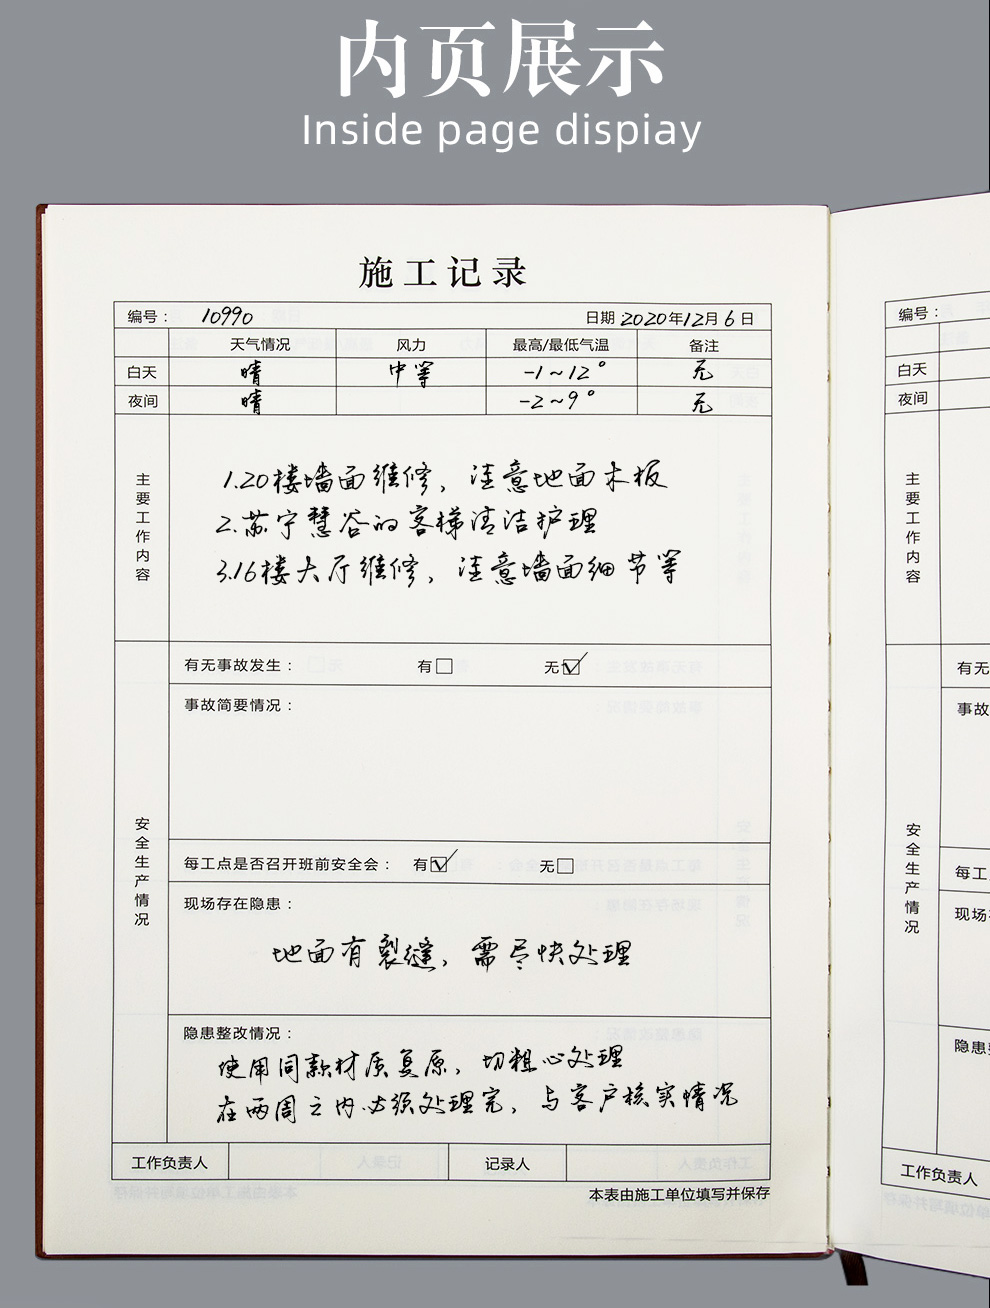 内页展示
Inside page dispiay
施工记录
编号： 10990 日期 2020年12月6日
天气情况 风力 最高/最低气温 备注
白天 晴 中等 -1~12° 无
夜间 晴 -2~9° 无
主要工作内容
1.20楼墙面维修，注意地面木板
2.苏宁慧谷的客梯清洁护理
3.16楼大厅维修，注意墙面细节等
安全生产情况
有无事故发生： 有□ 无☑
事故简要情况：
每工点是否召开班前安全会： 有☑ 无□
现场存在隐患：
地面有裂缝，需尽快处理
隐患整改情况：
使用同款材质复原，切粗心处理
在两周之内必须处理完，与客户核实情况
工作负责人 记录人
本表由施工单位填写并保存
编号：
白天
夜间
主要工作内容
有无
事故
安全生产情况
每工
现场
隐患
工作负责人